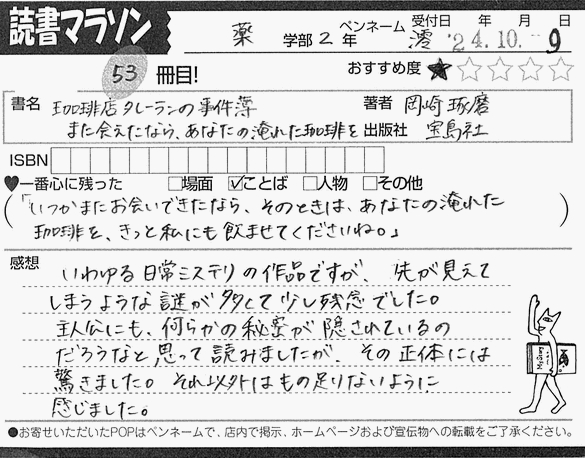 読書マラソン
薬 学部 2 年 ペンネーム 澪 受付日 '24.10.-9 年 月 日
53 冊目! おすすめ度 ★☆☆☆☆
書名 珈琲店タレーランの事件簿 著者 岡崎琢磨
また会えたなら、あなたの淹れた珈琲を 出版社 宝島社
ISBN
♥一番心に残った □場面 ☑ことば □人物 □その他
(「いつかまたお会いできたなら、そのときは、あなたの淹れた
珈琲を、きっと私にも飲ませてくださいね。」)
感想 いわゆる日常ミステリの作品ですが、先が見えて
しまうような謎が多くて少し残念でした。
主人公にも、何らかの秘密が隠されているの
だろうなと思って読みましたが、その正体には
驚きました。それ以外はもの足りないように
感じました。
●お寄せいただいたPOPはペンネームで、店内で掲示、ホームページおよび宣伝物への転載をご了承ください。